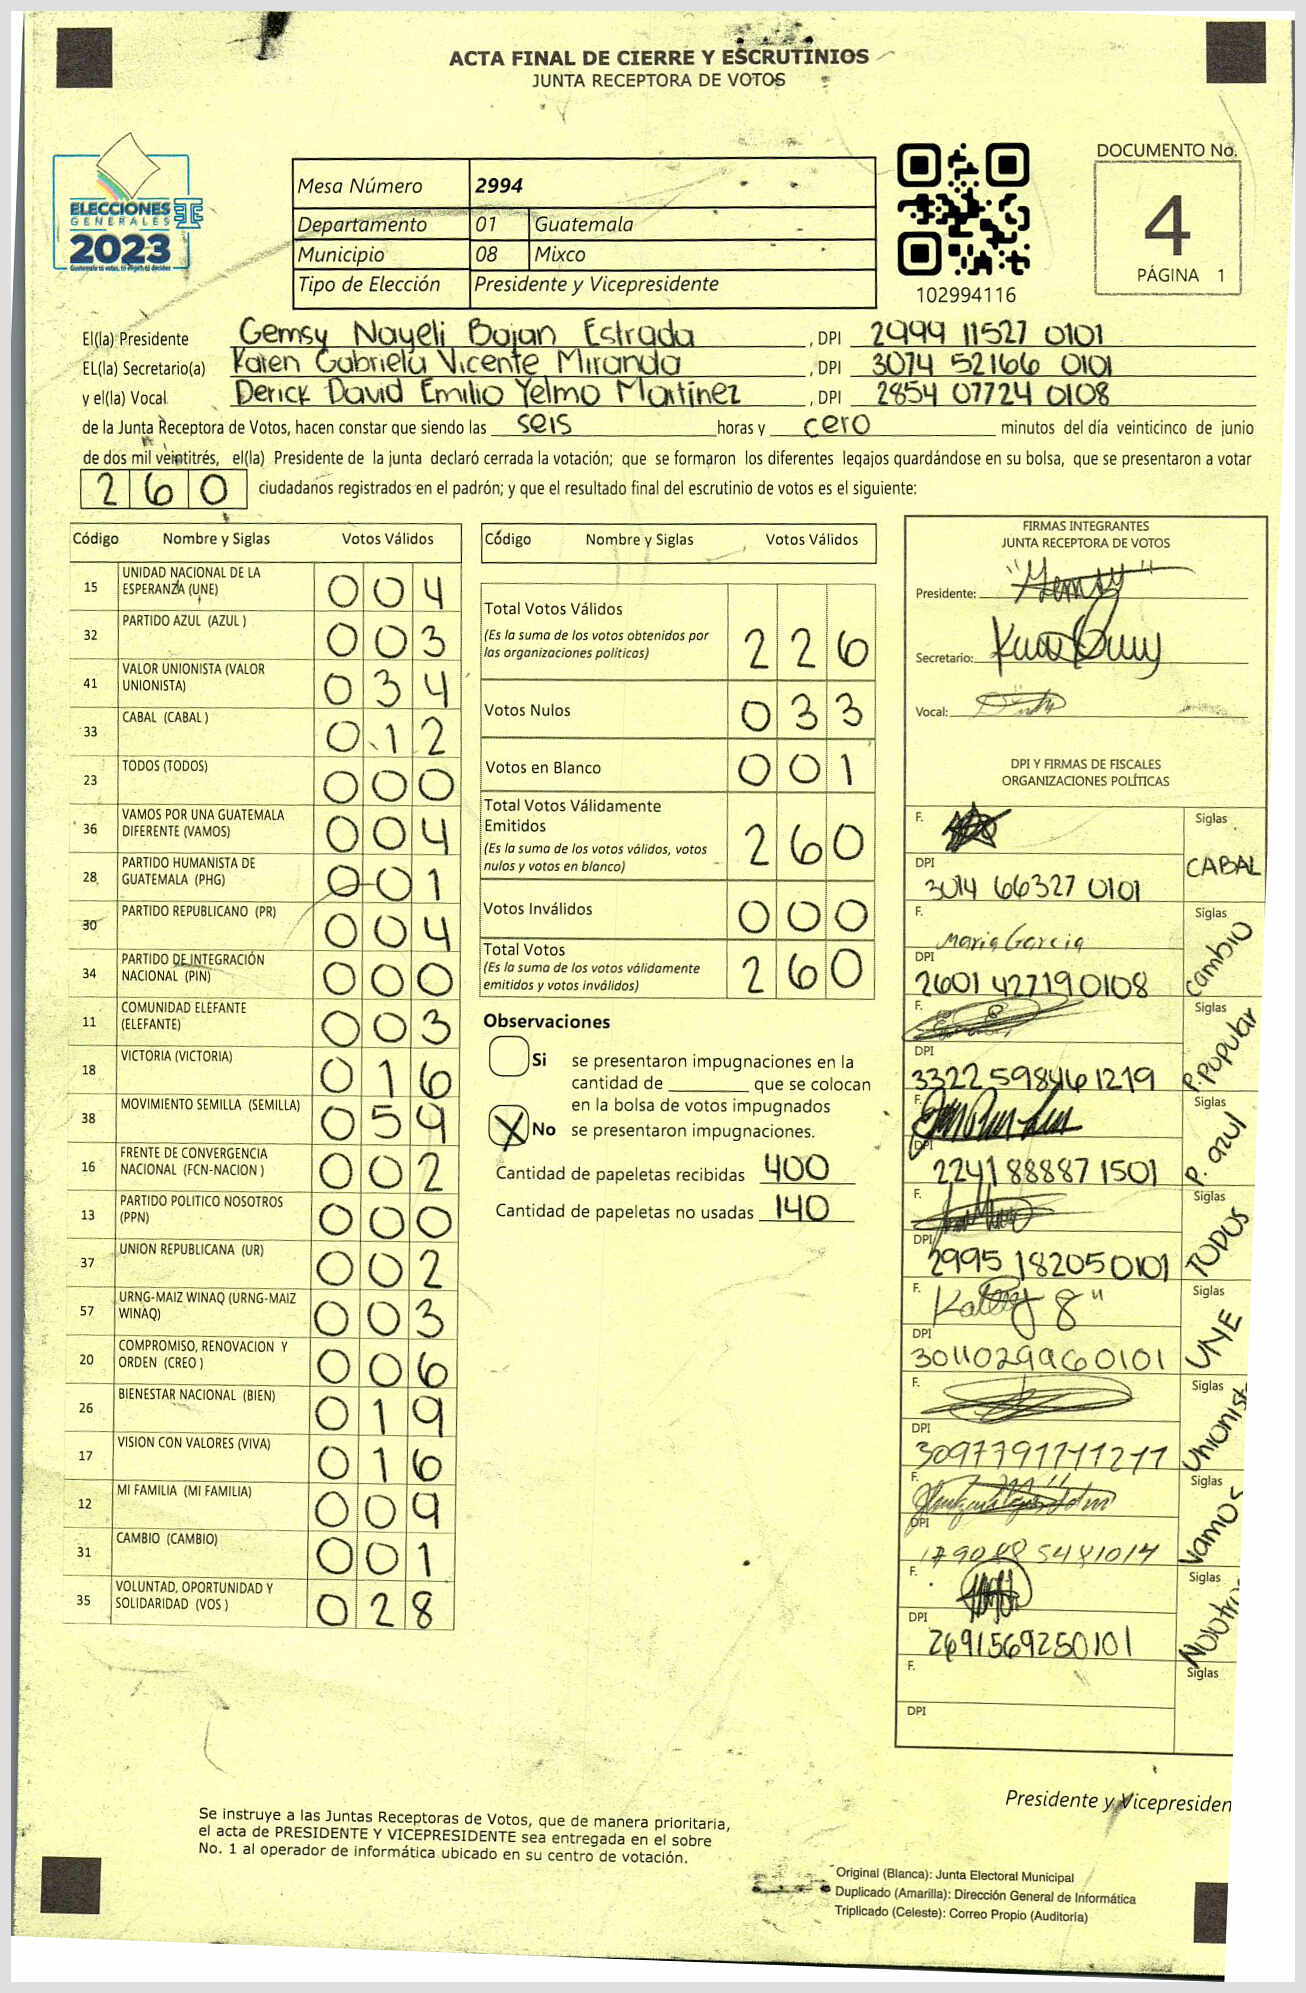 ACTA FINAL DE CIERRE Y ESCRUTINIOS
JUNTA RECEPTORA DE VOTOS
ELECCIONES
GENERALES
2023
Guatemala tú votas, tú eliges, tú decides
Mesa Número 2994
Departamento 01 Guatemala
Municipio 08 Mixco
Tipo de Elección Presidente y Vicepresidente
102994116
DOCUMENTO No.
4
PÁGINA 1
El(la) Presidente Gemsy Nayeli Bajan Estrada, DPI 2999 11527 0101
EL(la) Secretario(a) Karen Gabriela Vicente Miranda, DPI 3074 52166 0101
y el(la) Vocal Derick David Emilio Yelmo Martínez, DPI 2854 07724 0108
de la Junta Receptora de Votos, hacen constar que siendo las seis horas y cero minutos del día veinticinco de junio
de dos mil veintitrés, el(la) Presidente de la junta declaró cerrada la votación; que se formaron los diferentes legajos guardándose en su bolsa, que se presentaron a votar
260 ciudadanos registrados en el padrón; y que el resultado final del escrutinio de votos es el siguiente:
Código Nombre y Siglas Votos Válidos
15 UNIDAD NACIONAL DE LA ESPERANZA (UNE) 004
32 PARTIDO AZUL (AZUL ) 003
41 VALOR UNIONISTA (VALOR UNIONISTA) 034
33 CABAL (CABAL ) 012
23 TODOS (TODOS) 000
36 VAMOS POR UNA GUATEMALA DIFERENTE (VAMOS) 004
28 PARTIDO HUMANISTA DE GUATEMALA (PHG) 001
30 PARTIDO REPUBLICANO (PR) 004
34 PARTIDO DE INTEGRACIÓN NACIONAL (PIN) 000
11 COMUNIDAD ELEFANTE (ELEFANTE) 003
18 VICTORIA (VICTORIA) 016
38 MOVIMIENTO SEMILLA (SEMILLA) 059
16 FRENTE DE CONVERGENCIA NACIONAL (FCN-NACION ) 002
13 PARTIDO POLITICO NOSOTROS (PPN) 000
37 UNION REPUBLICANA (UR) 002
57 URNG-MAIZ WINAQ (URNG-MAIZ WINAQ) 003
20 COMPROMISO, RENOVACION Y ORDEN (CREO ) 006
26 BIENESTAR NACIONAL (BIEN) 019
17 VISION CON VALORES (VIVA) 016
12 MI FAMILIA (MI FAMILIA) 009
31 CAMBIO (CAMBIO) 001
35 VOLUNTAD, OPORTUNIDAD Y SOLIDARIDAD (VOS ) 028
Código Nombre y Siglas Votos Válidos
Total Votos Válidos
(Es la suma de los votos obtenidos por las organizaciones políticas) 226
Votos Nulos 033
Votos en Blanco 001
Total Votos Válidamente Emitidos
(Es la suma de los votos válidos, votos nulos y votos en blanco) 260
Votos Inválidos 000
Total Votos
(Es la suma de los votos válidamente emitidos y votos inválidos) 260
Observaciones
Si se presentaron impugnaciones en la
cantidad de ________ que se colocan
en la bolsa de votos impugnados
X No se presentaron impugnaciones.
Cantidad de papeletas recibidas 400
Cantidad de papeletas no usadas 140
FIRMAS INTEGRANTES
JUNTA RECEPTORA DE VOTOS
Presidente: "Gemsy"
Secretario:
Vocal:
DPI Y FIRMAS DE FISCALES
ORGANIZACIONES POLÍTICAS
F. Siglas
DPI 3014 66327 0101 CABAL
F. Maria Garcia Siglas
DPI 2601 42719 0108 Cambio
F. Siglas
DPI 3322 59846 1219 P. Popular
F. Siglas
DPI 2241 88887 1501 P. azul
F. Siglas
DPI 2995 18205 0101 TODOS
F. Siglas
DPI 3011029960101 UNE
F. Siglas
DPI 3097791711211 Unionist
F. Siglas
DPI Vamos
F. Siglas
DPI 2691569250101
F. Siglas
DPI
Presidente y Vicepresiden
Se instruye a las Juntas Receptoras de Votos, que de manera prioritaria,
el acta de PRESIDENTE Y VICEPRESIDENTE sea entregada en el sobre
No. 1 al operador de informática ubicado en su centro de votación.
Original (Blanca): Junta Electoral Municipal
Duplicado (Amarilla): Dirección General de Informática
Triplicado (Celeste): Correo Propio (Auditoría)